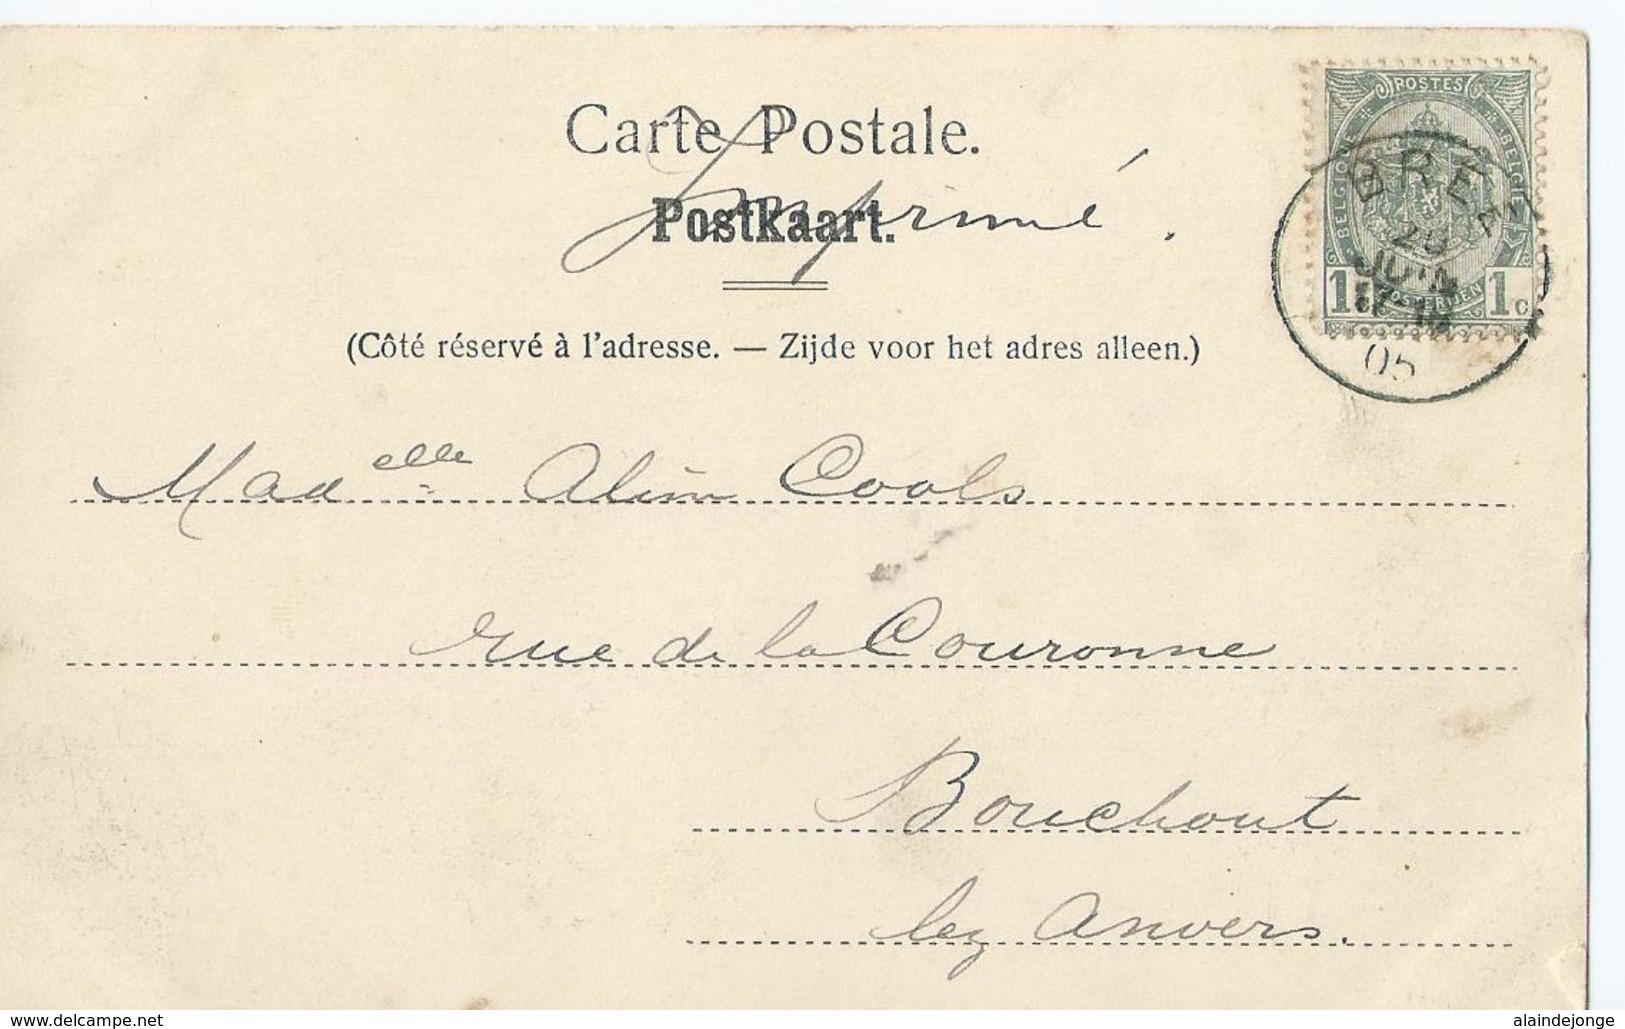 Carte Postale.
Imprimé.
Postkaart.
(Côté réservé à l'adresse. — Zijde voor het adres alleen.)
POSTES
BELGIQUE BELGIË
1 POSTERIJEN 1c
BREE
JUIN
17-18
05
Madelle Aline Cools
rue de la Couronne
Bouchout
lez Anvers.
www.delcampe.net
alaindejonge